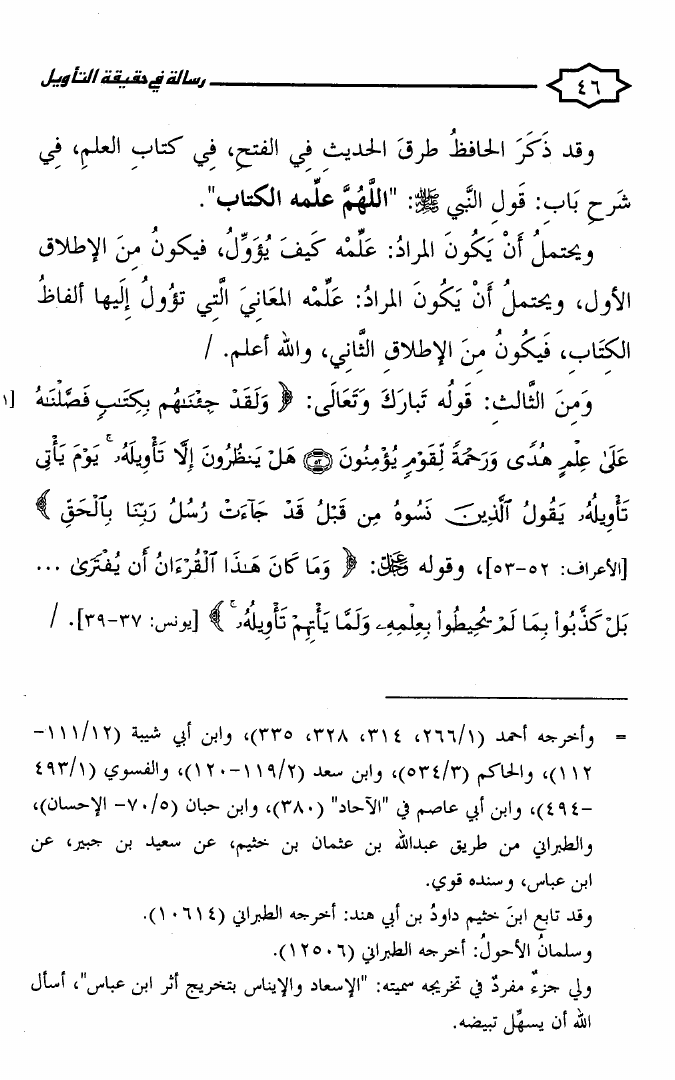 رسالة في حقيقة التأويل
٤٦
وقد ذَكَرَ الحافظُ طرقَ الحديثِ في الفتحِ، في كتابِ العلمِ، في
شَرحِ بَابِ: قَولِ النَّبي ﷺ: "اللَّهُمَّ علِّمه الكتاب".
ويحتملُ أَنْ يَكُونَ المرادُ: عَلِّمْه كَيفَ يُؤَوِّلُ، فيكونُ مِنَ الإطلاقِ
الأول، ويحتملُ أَنْ يَكُونَ المرادُ: عَلِّمْه المعَانيَ الَّتِي تؤولُ إلَيها ألفاظُ
الكِتَابِ، فَيكُونُ مِنَ الإطلاقِ الثَّاني، والله أعلم. /
وَمِنَ الثَّالثِ: قَولُه تَبَارَكَ وَتَعَالَى: ﴿ وَلَقَدْ جِئْنَٰهُم بِكِتَٰبٍ فَصَّلْنَٰهُ [١
عَلَىٰ عِلْمٍ هُدًى وَرَحْمَةً لِّقَوْمٍ يُؤْمِنُونَ ۝٥٢ هَلْ يَنظُرُونَ إِلَّا تَأْوِيلَهُۥ ۚ يَوْمَ يَأْتِى
تَأْوِيلُهُۥ يَقُولُ ٱلَّذِينَ نَسُوهُ مِن قَبْلُ قَدْ جَآءَتْ رُسُلُ رَبِّنَا بِٱلْحَقِّ ﴾
[الأعراف: ٥٢-٥٣]، وقوله ﷿: ﴿ وَمَا كَانَ هَٰذَا ٱلْقُرْءَانُ أَن يُفْتَرَىٰ ...
بَلْ كَذَّبُوا۟ بِمَا لَمْ يُحِيطُوا۟ بِعِلْمِهِۦ وَلَمَّا يَأْتِهِمْ تَأْوِيلُهُۥ ۚ ﴾ [يونس: ٣٧-٣٩]. /
= وأخرجه أحمد (٢٦٦/١، ٣١٤، ٣٢٨، ٣٣٥)، وابن أبي شيبة (١١١/١٢-
١١٢)، والحاكم (٥٣٤/٣)، وابن سعد (١١٩/٢-١٢٠)، والفسوي (٤٩٣/١
-٤٩٤)، وابن أبي عاصم في "الآحاد" (٣٨٠)، وابن حبان (٧٠/٥- الإحسان)،
والطبراني من طريق عبدالله بن عثمان بن خثيم، عن سعيد بن جبير، عن
ابن عباس، وسنده قوي.
وقد تابع ابنَ خثيم داودُ بن أبي هند: أخرجه الطبراني (١٠٦١٤).
وسلمانُ الأحولُ: أخرجه الطبراني (١٢٥٠٦).
ولي جزءٌ مفردٌ في تخريجه سميته: "الإسعاد والإيناس بتخريج أثر ابن عباس"، أسأل
الله أن يسهِّل تبيضه.